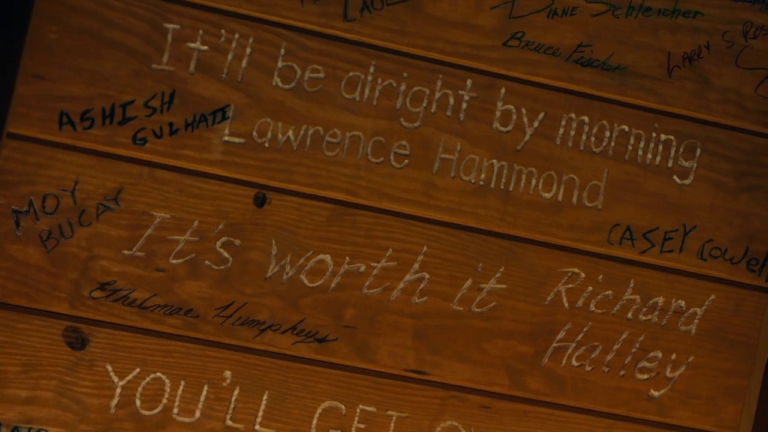 DIANE Schleicher
Bruce Fischer
LARRY S
It'll be alright by morning
Lawrence Hammond
ASHISH
GULHATI
CASEY
MOY
BUCAY
It's worth it Richard
Halley
Ethelmae Humphreys
YOU'LL GET